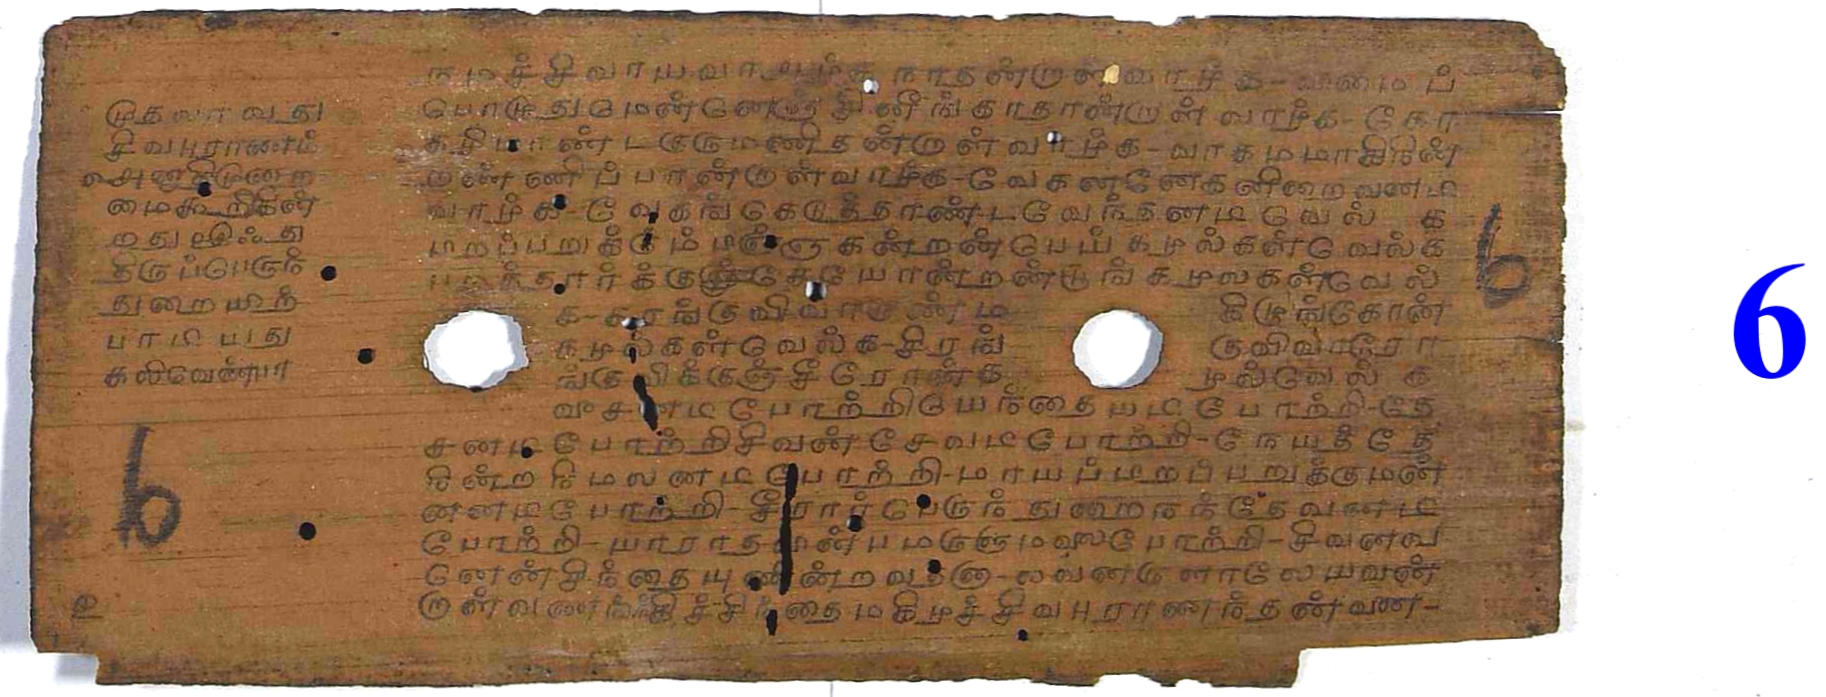 முதலாவது
சிவபுராணம்
மைகூறிகின்
றது இஃது
திருப்பெருந்
துறையிற்
பாடியது
கலிவெண்பா
6
௨
நமச்சிவாயவாஅழ்க நாதன்றாள்வாழ்க-யிமைப்
பொழுதுமென்னெஞ்சினீங்காதான்றாள் வாழ்க-கோ
கழியாண்டகுருமணிதன்றாள்வாழ்க-வாகமமாகிநின்
றண்ணிப்பான்றாள்வாழ்க-வேகனனேகனிறைவனடி
வாழ்க-வேகங்கெடுத்தாண்டவேந்தனடி வெல் க
பிறப்பறுக்கும்பிஞ்ஞகன்றன்பெய்கழல்கள்வெல்க
புறத்தார்க்குஞ்சேயோன்றன்பூங்கழலகள்வெல்
க-கரங்குவிவாருண்ம கிழுங்கோன்
கழல்கள்வெல்க-சிரங் குவிவாரோ
ங்குவிக்குஞ்சீரோன்க ழல்வெல் க
வீசனடிபோற்றியெந்தையடிபோற்றி-தே
சனடிபோற்றிசிவன்சேவடிபோற்றி-நேயத்தே
நின்றநிமலனடிபோற்றி-மாயப்பிறப்பறுக்குமன்
னனடிபோற்றி-சீரார்பெருந்துறைநந்தேவனடி
போற்றி-யாராதவின்பமருளுமலைபோற்றி-சிவனவ
னென்சிந்தையுணின்றவதனா-லவனருளாலேயவன்
றாள்வணங்கிச்சிந்தைமகிழச்சிவபுராணந்தன்வண-
6
6